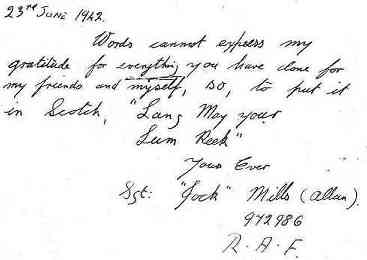 23rd June 1942.
Words cannot express my
gratitude for everything you have done for
my friends and myself, so, to put it
in Scotch, "Lang May your
Lum Reek"
Yours Ever
Sgt: "Jock" Mills (Allan).
972986
R.A.F.